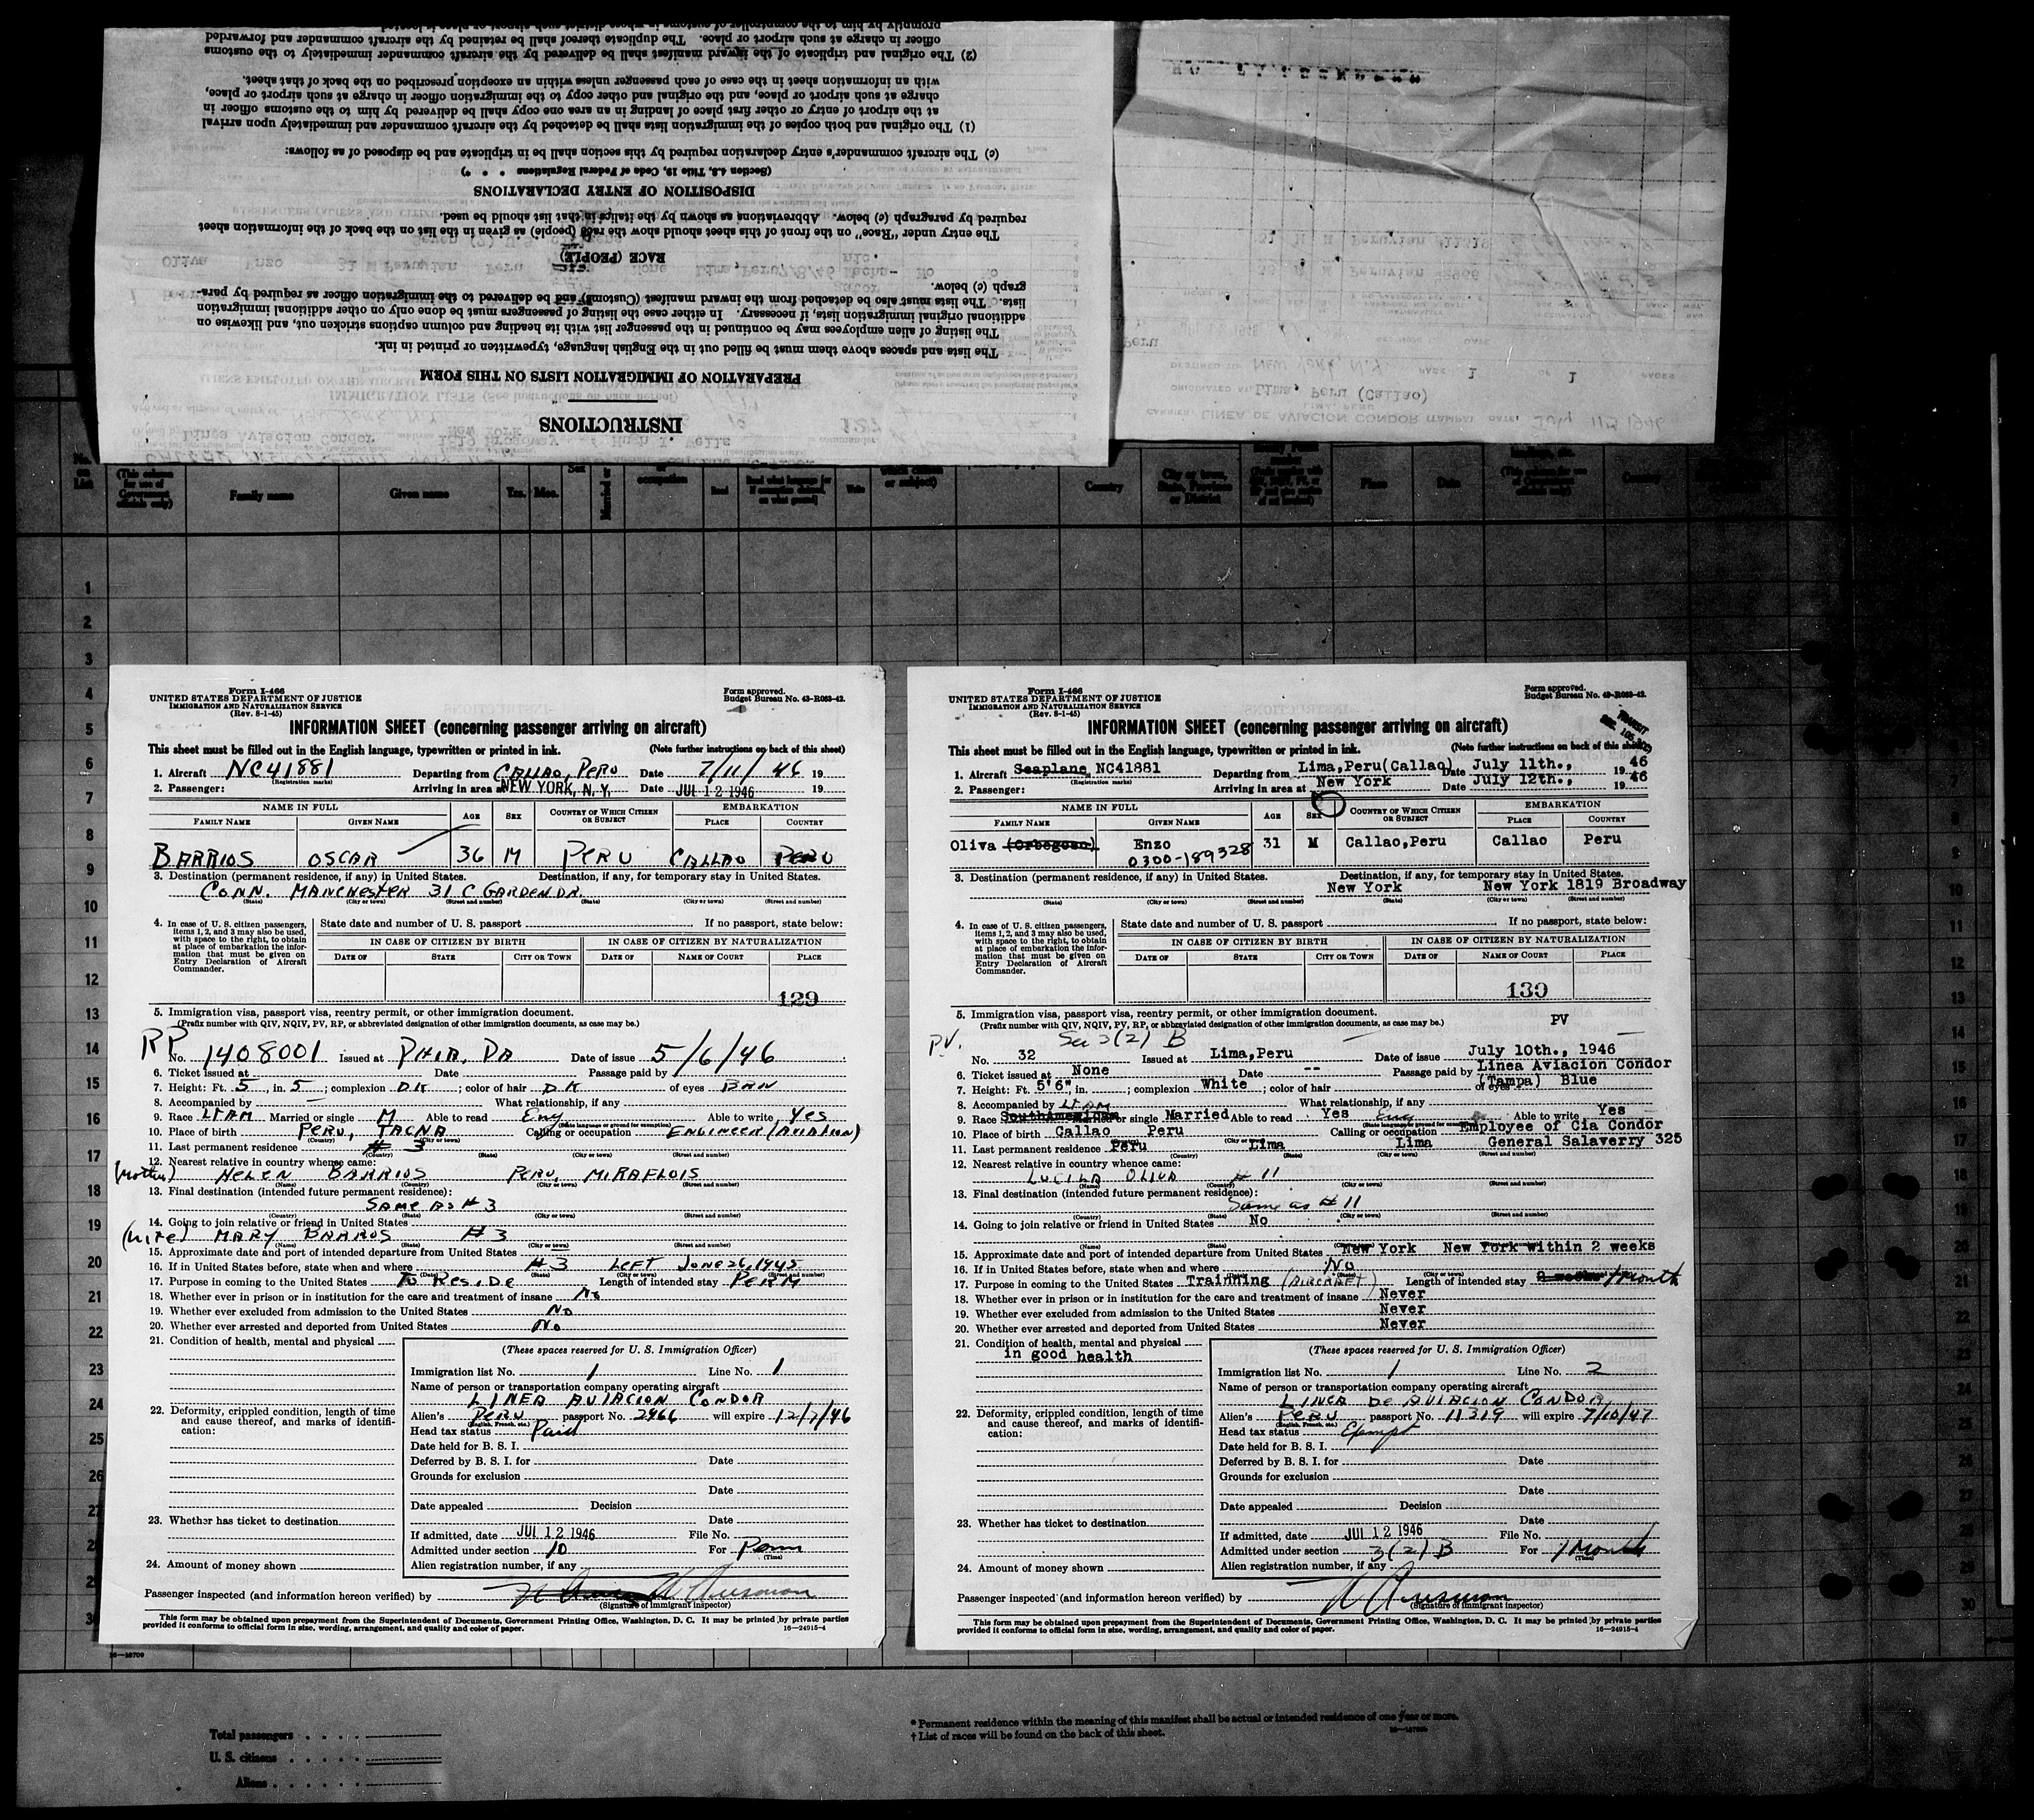 INSTRUCTIONS
PREPARATION OF IMMIGRATION LISTS ON THIS FORM
The lists and spaces above them must be filled out in the English language, typewritten or printed in ink.
The listing of alien employees may be continued in the passenger list with its heading and column captions stricken out, and likewise on
additional original immigration lists, if necessary. In either case the listing of passengers must be done only on other additional immigration
lists. The lists must also be detached from the inward manifest (Customs) and be delivered to the immigration officer as required by para-
graph (c) below.
RACE (PEOPLE)
The entry under "Race" on the front of this sheet should show the race (people) as given in the list on the back of the information sheet
required by paragraph (c) below. Abbreviations as shown by the italics in that list should be used.
DISPOSITION OF ENTRY DECLARATIONS
(Section 4.8, Title 19, Code of Federal Regulations * * *)
(c) The aircraft commander's entry declaration required by this section shall be in triplicate and be disposed of as follows:
(1) The original and both copies of the immigration lists shall be detached by the aircraft commander and immediately upon arrival
at the airport of entry or other first place of landing in an area one copy shall be delivered by him to the customs officer in
charge at such airport or place, and the original and other copy to the immigration officer in charge at such airport or place,
with an information sheet in the case of each passenger unless within an exception prescribed on the back of that sheet.
(2) The original and triplicate of the inward manifest shall be delivered by the aircraft commander immediately to the customs
officer in charge at such airport or place. The duplicate thereof shall be retained by the aircraft commander and forwarded
promptly by him to the comptroller of customs
No. on List
(This column for use of Government officials only)
Family name
Given name
Yrs.
Mos.
Sex
Married or
occupation
Read
Write
Country
City or town, State, Province or District
Place
Date
Country
1
2
3
4
5
6
7
8
9
10
11
12
13
14
15
16
17
18
19
20
21
22
23
24
25
26
27
28
29
30
Form I-466
UNITED STATES DEPARTMENT OF JUSTICE
IMMIGRATION AND NATURALIZATION SERVICE
(Rev. 8-1-45)
Form approved.
Budget Bureau No. 43-R083-42.
INFORMATION SHEET (concerning passenger arriving on aircraft)
This sheet must be filled out in the English language, typewritten or printed in ink. (Note further instructions on back of this sheet)
1. Aircraft NC41881 Departing from CALLAO, PERU Date 7/11/ 46 19
(Registration marks)
2. Passenger: Arriving in area at NEW YORK, N. Y. Date JUL 12 1946 19
NAME IN FULL AGE SEX COUNTRY OF WHICH CITIZEN OR SUBJECT EMBARKATION
FAMILY NAME GIVEN NAME PLACE COUNTRY
BARRIOS OSCAR 36 M PERU CALLAO PERU
3. Destination (permanent residence, if any) in United States. Destination, if any, for temporary stay in United States.
CONN. MANCHESTER 31 C GARDEN DR.
(State) (City or town) (Street and number) (State) (City or town) (Street and number)
4. In case of U. S. citizen passengers, items 1, 2, and 3 may also be used, with space to the right, to obtain at place of embarkation the information that must be given on Entry Declaration of Aircraft Commander.
State date and number of U. S. passport If no passport, state below:
IN CASE OF CITIZEN BY BIRTH IN CASE OF CITIZEN BY NATURALIZATION
DATE OF STATE CITY OR TOWN DATE OF NAME OF COURT PLACE
129
5. Immigration visa, passport visa, reentry permit, or other immigration document.
(Prefix number with QIV, NQIV, PV, RP, or abbreviated designation of other immigration documents, as case may be.)
RP
No. 1408001 Issued at PHIA, PA Date of issue 5/6/46
6. Ticket issued at Date Passage paid by
7. Height: Ft. 5, in. 5; complexion DK; color of hair DK of eyes BRN
8. Accompanied by — What relationship, if any
9. Race LT AM Married or single M Able to read Eng Able to write Yes
(State language or ground for exemption)
10. Place of birth PERU, TACNA Calling or occupation ENGINEER (AVIATION)
(Country) (City or town)
11. Last permanent residence # 3
(Country) (State) (City or town) (Street and number)
12. Nearest relative in country whence came:
(mother) HELEN BARRIOS PERU, MIRAFLOIS
(Name) (Country) (City or town) (Street and number)
13. Final destination (intended future permanent residence):
SAME AS # 3
(Country) (State) (City or town) (Street and number)
14. Going to join relative or friend in United States
(wife) MARY BARRIOS #3
(Name) (State) (City or town) (Street and number)
15. Approximate date and port of intended departure from United States
16. If in United States before, state when and where #3 LEFT JUNE 26, 1945
17. Purpose in coming to the United States To Reside Length of intended stay PERM
18. Whether ever in prison or in institution for the care and treatment of insane No
19. Whether ever excluded from admission to the United States No
20. Whether ever arrested and deported from United States No
21. Condition of health, mental and physical
22. Deformity, crippled condition, length of time and cause thereof, and marks of identification:
23. Whether has ticket to destination
24. Amount of money shown
(These spaces reserved for U. S. Immigration Officer)
Immigration list No. 1 Line No. 1
Name of person or transportation company operating aircraft
LINEA AVIACION CONDOR
Alien's PERU passport No. 2966 will expire 12/7/46
(English, French, etc.)
Head tax status Paid
Date held for B. S. I.
Deferred by B. S. I. for Date
Grounds for exclusion
Date
Date appealed Decision
Date
If admitted, date JUL 12 1946 File No.
Admitted under section 10 For Perm
(Time)
Alien registration number, if any
Passenger inspected (and information hereon verified) by
(Signature of immigrant inspector)
This form may be obtained upon prepayment from the Superintendent of Documents, Government Printing Office, Washington, D. C. It may be printed by private parties
provided it conforms to official form in size, wording, arrangement, and quality and color of paper. 16—24915-4
Form I-466
UNITED STATES DEPARTMENT OF JUSTICE
IMMIGRATION AND NATURALIZATION SERVICE
(Rev. 8-1-45)
Form approved.
Budget Bureau No. 43-R083-42.
INFORMATION SHEET (concerning passenger arriving on aircraft)
This sheet must be filled out in the English language, typewritten or printed in ink. (Note further instructions on back of this sheet)
1. Aircraft Seaplane NC41881 Departing from Lima,Peru(Callao) Date July 11th., 19 46
(Registration marks)
2. Passenger: Arriving in area at New York Date July 12th., 19 46
NAME IN FULL AGE SEX COUNTRY OF WHICH CITIZEN OR SUBJECT EMBARKATION
FAMILY NAME GIVEN NAME PLACE COUNTRY
Oliva (Orbegoso) Enzo 31 M Callao,Peru Callao Peru
0300-189328
3. Destination (permanent residence, if any) in United States. Destination, if any, for temporary stay in United States.
New York New York 1819 Broadway
(State) (City or town) (Street and number) (State) (City or town) (Street and number)
4. In case of U. S. citizen passengers, items 1, 2, and 3 may also be used, with space to the right, to obtain at place of embarkation the information that must be given on Entry Declaration of Aircraft Commander.
State date and number of U. S. passport If no passport, state below:
IN CASE OF CITIZEN BY BIRTH IN CASE OF CITIZEN BY NATURALIZATION
DATE OF STATE CITY OR TOWN DATE OF NAME OF COURT PLACE
130
5. Immigration visa, passport visa, reentry permit, or other immigration document.
(Prefix number with QIV, NQIV, PV, RP, or abbreviated designation of other immigration documents, as case may be.) PV
P.V. Sec 3(2) B
No. 32 Issued at Lima,Peru Date of issue July 10th., 1946
6. Ticket issued at None Date -- Passage paid by Linea Aviacion Condor
7. Height: Ft. 5'6", in. ; complexion White; color of hair (Tampa) of eyes Blue
8. Accompanied by What relationship, if any
9. Race SouthAmerican LT AM Married or single Married Able to read Yes Eng Able to write Yes
(State language or ground for exemption)
10. Place of birth Callao Peru Calling or occupation Employee of Cia Condor
11. Last permanent residence Peru Lima Lima General Salaverry 325
(Country) (City or town) (Street and number)
12. Nearest relative in country whence came:
LUCILA OLIVA # 11
(Name) (Country) (City or town) (Street and number)
13. Final destination (intended future permanent residence):
Same as # 11
(Country) (State) (City or town) (Street and number)
14. Going to join relative or friend in United States No
(Name) (State) (City or town) (Street and number)
15. Approximate date and port of intended departure from United States New York New York within 2 weeks
16. If in United States before, state when and where No
17. Purpose in coming to the United States Trainning (AIRCRAFT) Length of intended stay 2 weeks 1 Month
18. Whether ever in prison or in institution for the care and treatment of insane Never
19. Whether ever excluded from admission to the United States Never
20. Whether ever arrested and deported from United States Never
21. Condition of health, mental and physical
in good health
22. Deformity, crippled condition, length of time and cause thereof, and marks of identification:
23. Whether has ticket to destination
24. Amount of money shown
(These spaces reserved for U. S. Immigration Officer)
Immigration list No. 1 Line No. 2
Name of person or transportation company operating aircraft
LINEA DE AVIACION CONDOR
Alien's PERU passport No. 11319 will expire 7/10/47
(English, French, etc.)
Head tax status Exempt
Date held for B. S. I.
Deferred by B. S. I. for Date
Grounds for exclusion
Date
Date appealed Decision
Date
If admitted, date JUL 12 1946 File No.
Admitted under section 3(2) B For 1 Month
(Time)
Alien registration number, if any
Passenger inspected (and information hereon verified) by
(Signature of immigrant inspector)
This form may be obtained upon prepayment from the Superintendent of Documents, Government Printing Office, Washington, D. C. It may be printed by private parties
provided it conforms to official form in size, wording, arrangement, and quality and color of paper. 16—24915-4
Total passengers
U. S. citizens
Aliens
* Permanent residence within the meaning of this manifest shall be actual or intended residence of one year or more.
† List of races will be found on the back of this sheet.